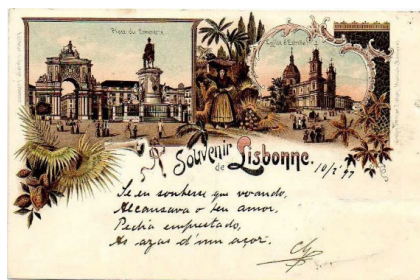 Place du Commerce
Eglise d'Estrella
Souvenir
de Lisbonne.
10/2 97
Se eu soubesse que voando,
Alcansava o teu amor,
Pedia emprestado,
As azas d'um açor.